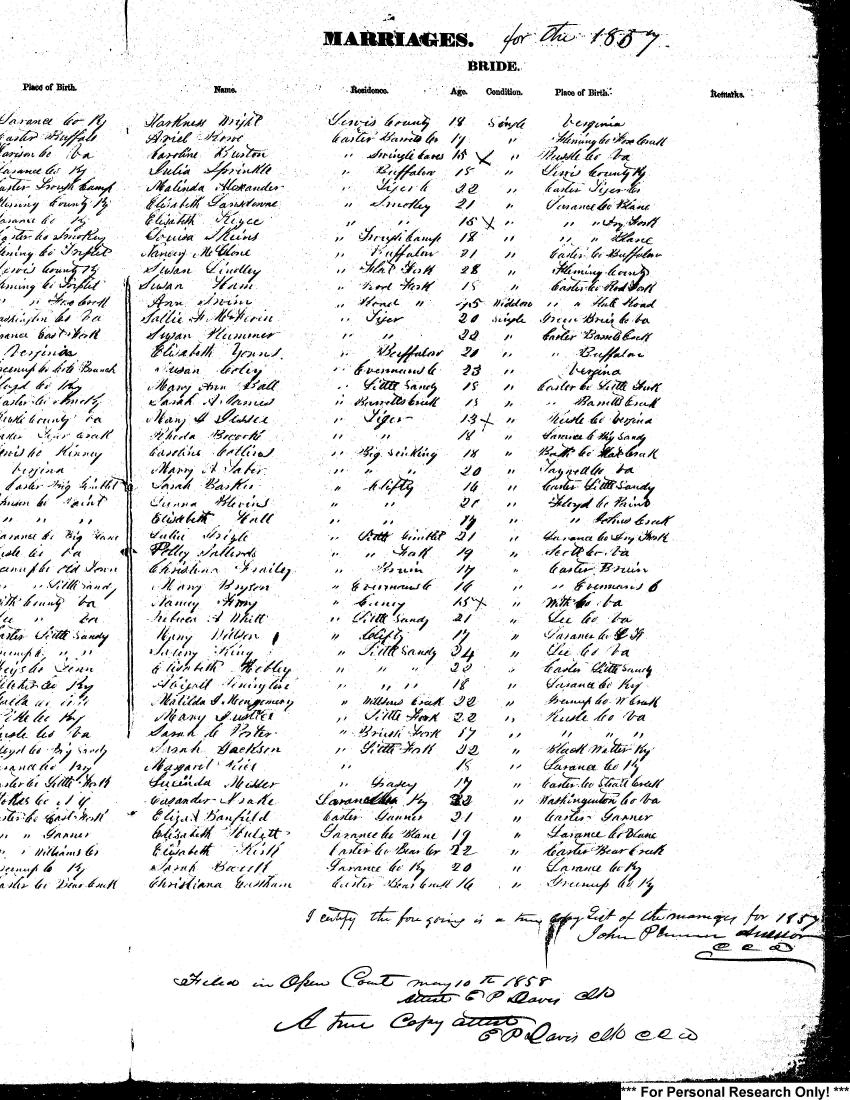 MARRIAGES. for the 1857.
BRIDE.
Place of Birth. Name. Residence. Age. Condition. Place of Birth. Remarks.
Larance Co Ky Harkness Wright Lewis County 18 Single Verginia
Carter Buffalo Ariel Howe Carter Barretts Cr 17 " Fleming Co Fox Creek
Harison Co Va Caroline Burton " 15 X " Russle Co Va
Larance Co Ky Julia Sprinkle " Buffalow 15 " Lewis County Ky
Carter Trough Camp Malinda Alexander " Tiger 22 " Carter Tiger Cr
Fleming County Ky Elizabeth Lansdowne " Smokey 21 " Larance Co Blane
Larance Co Ky Elizabeth " " 15 X " " " Dry Fork
Carter Co Smokey Louisa Skeins " Trough Camp 18 " " " Blane
Fleming Co Triplet Nancy McGlone " Buffalow 21 " Carter Co Buffalow
Lewis County Ky Susan Lindley " Flat Fork 28 " Fleming County
Fleming Co Triplet Susan Ham " Rod Fork 15 " Carter Co Rod Fork
" " Fox Creek Ann Irvin " Road " 45 Widdow " "
Washington Co Va Sallie " Tiger 20 Single Green Brier Co Va
Larance East Fork Susan Plummer " " 22 " Carter Barretts Creek
Verginia Elizabeth Younts. " Buffalow 20 " " Buffalow
Greenup Co Susan Coley " Evermans C 23 " Vergina
Floyd Co Ky Mary Ann Ball " Little Sandy 15 " Carter Co Little Fork
Carter Co Smoky Sarah A James " Barretts Creek 15 " " Barretts Creek
Russle County Va Mary " Tiger 13 X " Russle Co Vergina
Rhoda " " 18 " Larance Co Big Sandy
Lewis Co Kinney Caroline Collins " Big Sinking 18 " Bath Co Flat Creek
Vergina Mary A Tabor " " " 20 " Taswell Co Va
Carter Big Gimblet Sarah Barker " Clifty 16 " Carter Little Sandy
Johnson Co Paint Blevins " " 21 " Floyd Co Paint
" " " Elizabeth Hall " " 17 " " Johns Creek
Larance Co Big Blane Julia " Little Gimblet 21 " Larance Co Dry Fork
Russle Co Va Polley " " Fork 19 " Scott Co Va
Greenup Co Old Town Christina Frailey " Bruin 17 " Carter Bruin
" " Little Sandy Mary Bryson " Evermans C 16 " " Evermans C
With County Va Nancy " Caney 15 X " With Co Va
Lee " Va Rebeca A Whitt " Little Sandy 21 " Lee Co Va
Carter Little Sandy Mary Wilson " Clifty 17 " Larance Co
Greenup " " King " Little Sandy 24 " Lee Co Va
Elizabeth Mobley " " " 22 " Carter Little Sandy
Fletcher Co Ky Abigall " " " 18 " Larance Co Ky
Matilda J Montgomery " Wilsons Creek 22 " Greenup Co W Creek
Pike Co Ky Mary Justice " Little Fork 22 " Russle Co Va
Russle Co Va Sarah C Porter " Brush Fork 17 " " " "
Floyd Co Big Sandy Sarah Jackson " Little Fork 22 " Black Watter Ky
Larance Co Ky Margaret " " 18 " Larance Co Ky
Carter Co Little Fork Lucinda Messer " Grasey 17 " Carter Co Straite Creek
Casander Larance Co Ky 22 " Washingnton Co Va
Carter Co East Fork Eliza A Banfield Carter Garner 21 " Carter Garner
" " Garner Elizabeth Larance Co Blane 19 " Larance Co Blane
" " Williams Cr Elizabeth Kish Carter Co Bear Cr 22 " Carter Bear Creek
Greenup Co Ky Sarah Larance Co Ky 20 " Larance Co Ky
Carter Co Bear Creek Christiana Eastham Carter Bear Creek 16 " Greenup Co Ky
I certify the fore going is a true copy List of the marriages for 1857
John Plummer Assessor
C C D
Filed in Open Court may 10th 1858
attest E P Davis Clk
A true Copy attest
E P Davis Clk C C D
*** For Personal Research Only! ***